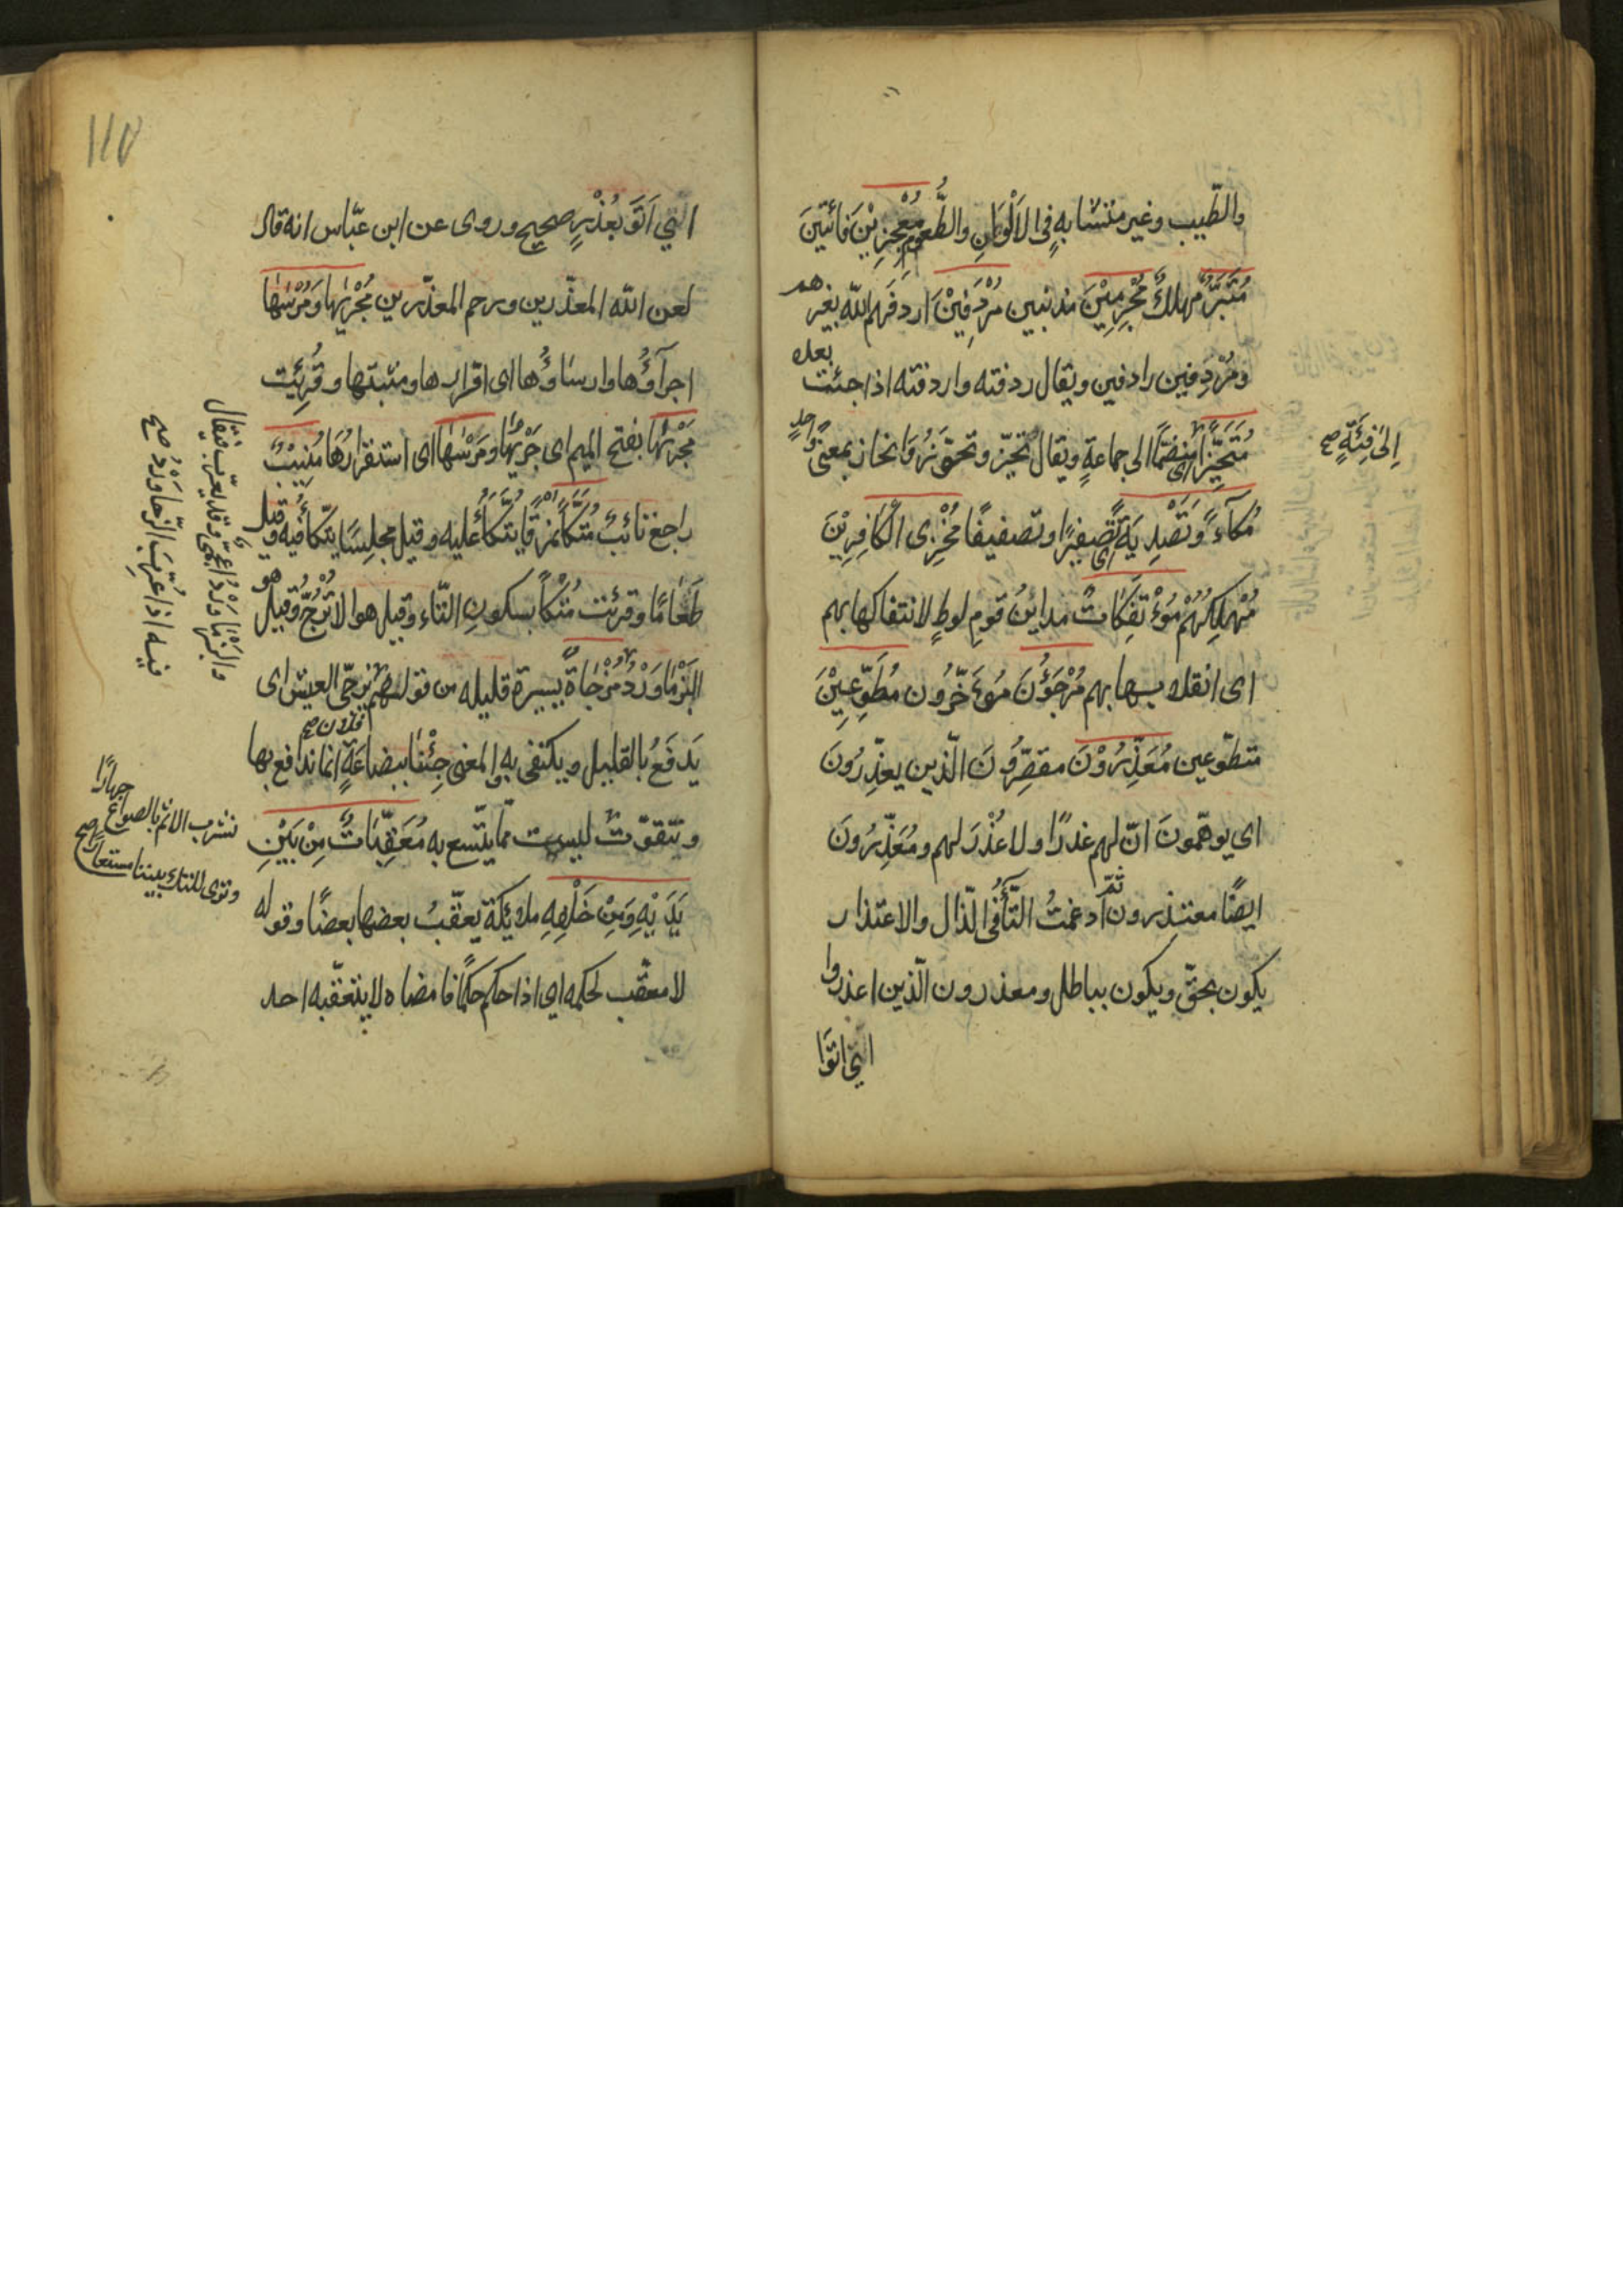 والطّيب وغير متشابهٍ فى الاَلْوَانِ والطُّعُوم مُعْجِزِيْنَ فَائتينَ
مُتَبَّرٌ مهلكٌ مُجْرِمِيْنَ مذنبين مُرْدَفِيْنَ اردفَهم اللّه بغيرهم
ومُرْدِفين رادفين ويقال ردفته واردفته اذا جئت بعده
مُتَحَيِّزًا اى منضمًّا الى جماعةٍ ويقال تحيّز وتحوّز وَانحاز بمعنًى واحدٍ
اِلىٰ فِئَةٍ صح
مُكآءً وَتَصْدِيَةً اى صفيرًا وتصفيقًا مُخْزِى الْكَافِرِيْنَ
مُهْلِكُهُمْ مُؤْتَفِكَاتٌ مداينُ قومِ لوطٍ لائتفاكها بهم
اى انقلابها بهم مُرْجَؤُنَ مُؤَخَّرُون مُطَّوِّعِيْنَ
متطوّعين مُعَذِّرُوْنَ مقصِّرُونَ الّذين يعذِّرُونَ
اى يوهّمونَ انّ لهم عذرًا ولا عُذْرَ لهم ومُعَذِّرُونَ
ايضًا معتذرون ثمّ ادغمتُ التّآءُ فى الذّال والاعتذار
يكون بحقّ ويكون بباطل ومعذرون الّذين اعذروا
اتَوَا
اَتَوَ بعُذْرٍ صحيح وروى عن ابن عبّاس انه قال
لعن اللّه المعذّرين ورحم المعذّرين مُجْرٰىهَا وَمُرْسٰىهَا
اجرآؤُها وارساؤُها اى اقرارها ومثبتها وقُرِئَت
مَجْرٰىهَا بفتح الميم اى جَرْيُهَا وَمَرْسٰىهَا اى استقرارُهَا مُنِيْبٌ
راجع تائبٌ مُتَّكَأً نمرقًا يُتَّكَأُ عليه وقيل مجلِسًا يتّكأُ فيه وقيل
طَعَامًا وقرئت مُتْكًا بسكونِ التّاء وقيل هو الاُتْرُجُّ وقيل هو
البَزْمَاوَرْدُ مُزْجَاةٌ يسيرة قليله من قولهم يزجّى العيش اى
يَدفَعُ بالقليل ويكتفى به والمغنى جِئْنَا ببِضَاعَةٍ انما ندافع بها
ونتقوّتُ ليست ممّا يتّسع به مُعَقِّبَاتٌ مِنْ بَيْنِ
يَدَيْهِ وَمِنْ خَلْفِهِ ملائكة يعقّبُ بعضها بعضًا وقوله
لا معقّب لحكمه اى اذا حكم حكمًا فامضاه لا يتعقّبه احد
والبَزْمَاوَرْدُ اعجمىٌّ وقد يعرّب فيقال
فيه اذا عُرِّبَ الزّمَاوَرْدُ صح
نشرب الاثم بالصواع جهارًا
وترى المتك بيننا مستعارًا صح